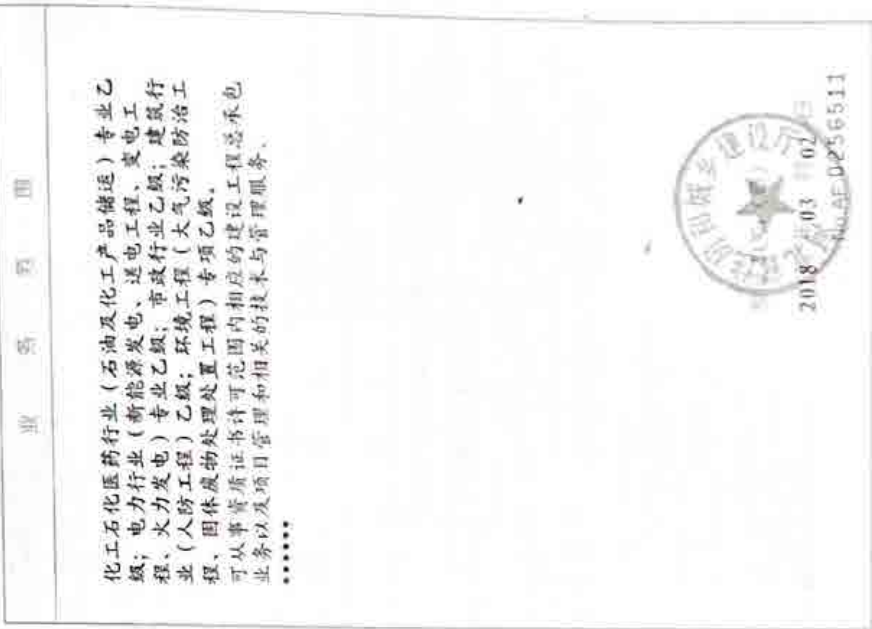 业务范围
化工石化医药行业（石油及化工产品储运）专业乙
级；电力行业（新能源发电、送电工程、变电工
程、火力发电）专业乙级；市政行业乙级；建筑行
业（人防工程）乙级；环境工程（大气污染防治工
程、固体废物处理处置工程）专项乙级。
可从事资质证书许可范围内相应的建设工程总承包
业务以及项目管理和相关的技术与管理服务。
••••••
住房和城乡建设厅
2018 03 02
No.AF 0256511